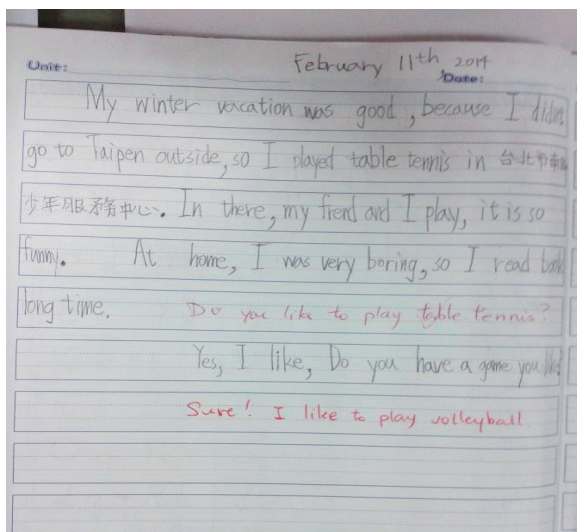 February 11th, 2014
Unit: Date:
My winter vacation was good, because I didn't
go to Taipen outside, so I played table tennis in 台北市
少年服务中心. In there, my frend and I play, it is so
funny. At home, I was very boring, so I read
long time. Do you like to play table tennis?
Yes, I like, Do you have a game you like
Sure! I like to play volleyball.